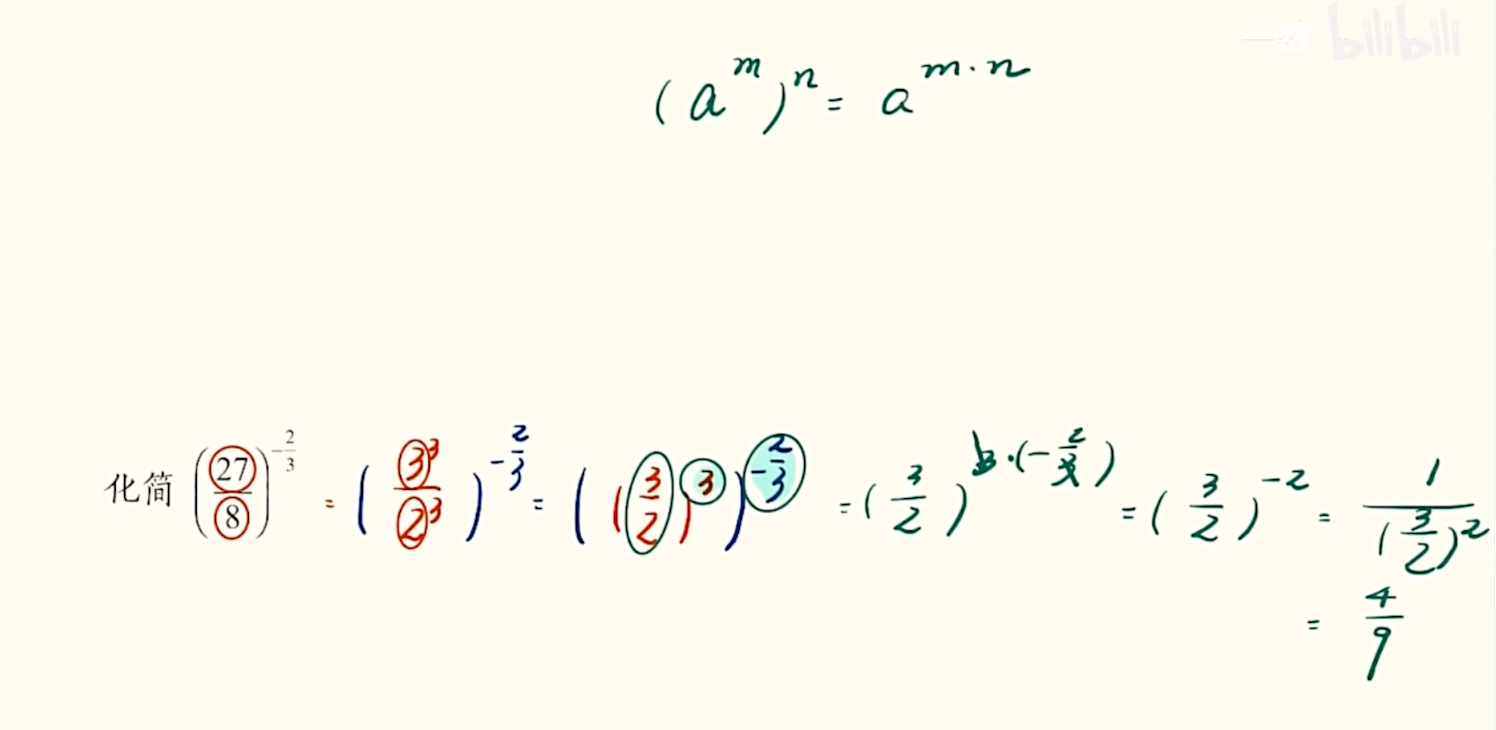 一数 bilibili
(a^m)^n = a^{m·n}
化简 (27/8)^{-2/3} = (3^3/2^3)^{-2/3} = ((3/2)^3)^{-2/3} = (3/2)^{3·(-2/3)} = (3/2)^{-2} = 1/(3/2)^2
= 4/9